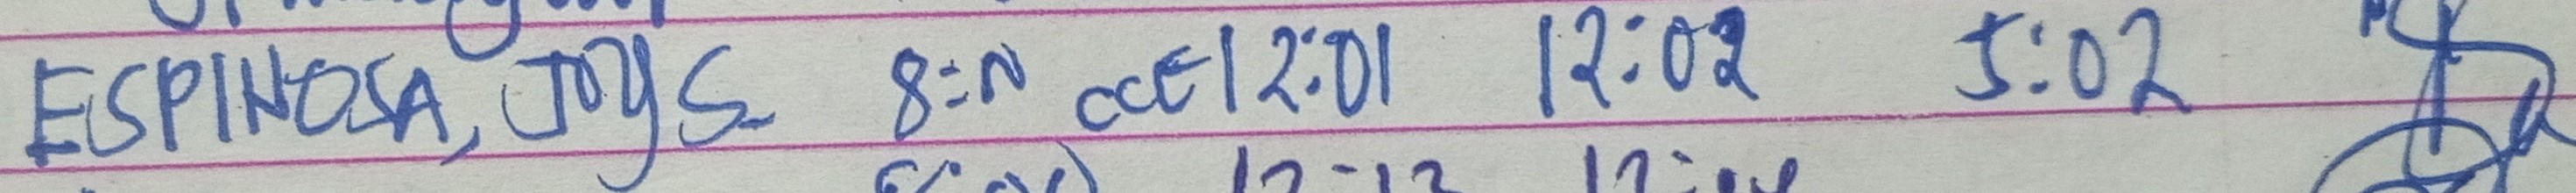 ESPINOSA, JOY S. CCE 12:01 12:02 5:02